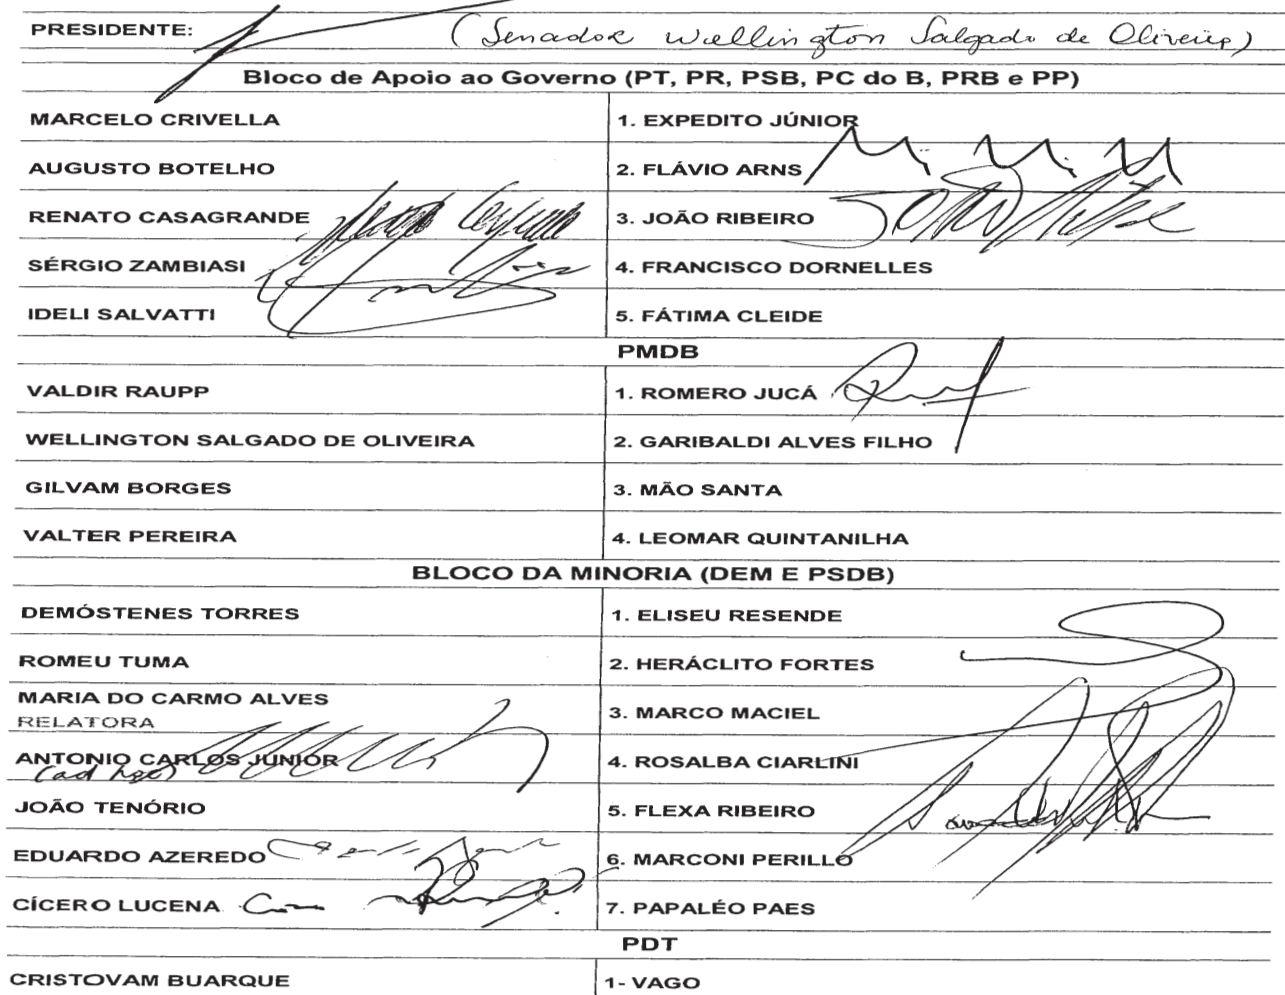 PRESIDENTE: (Senador Wellington Salgado de Oliveira)
Bloco de Apoio ao Governo (PT, PR, PSB, PC do B, PRB e PP)
MARCELO CRIVELLA 1. EXPEDITO JÚNIOR
AUGUSTO BOTELHO 2. FLÁVIO ARNS
RENATO CASAGRANDE 3. JOÃO RIBEIRO
SÉRGIO ZAMBIASI 4. FRANCISCO DORNELLES
IDELI SALVATTI 5. FÁTIMA CLEIDE
PMDB
VALDIR RAUPP 1. ROMERO JUCÁ
WELLINGTON SALGADO DE OLIVEIRA 2. GARIBALDI ALVES FILHO
GILVAM BORGES 3. MÃO SANTA
VALTER PEREIRA 4. LEOMAR QUINTANILHA
BLOCO DA MINORIA (DEM E PSDB)
DEMÓSTENES TORRES 1. ELISEU RESENDE
ROMEU TUMA 2. HERÁCLITO FORTES
MARIA DO CARMO ALVES 3. MARCO MACIEL
RELATORA
ANTONIO CARLOS JÚNIOR 4. ROSALBA CIARLINI
(ad hoc)
JOÃO TENÓRIO 5. FLEXA RIBEIRO
EDUARDO AZEREDO 6. MARCONI PERILLO
CÍCERO LUCENA 7. PAPALÉO PAES
PDT
CRISTOVAM BUARQUE 1- VAGO